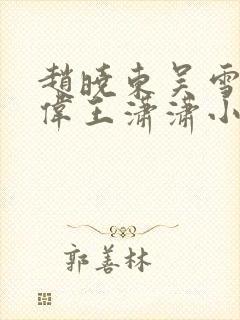 趙曉東吴雪
偉王潇潇小
郭善林